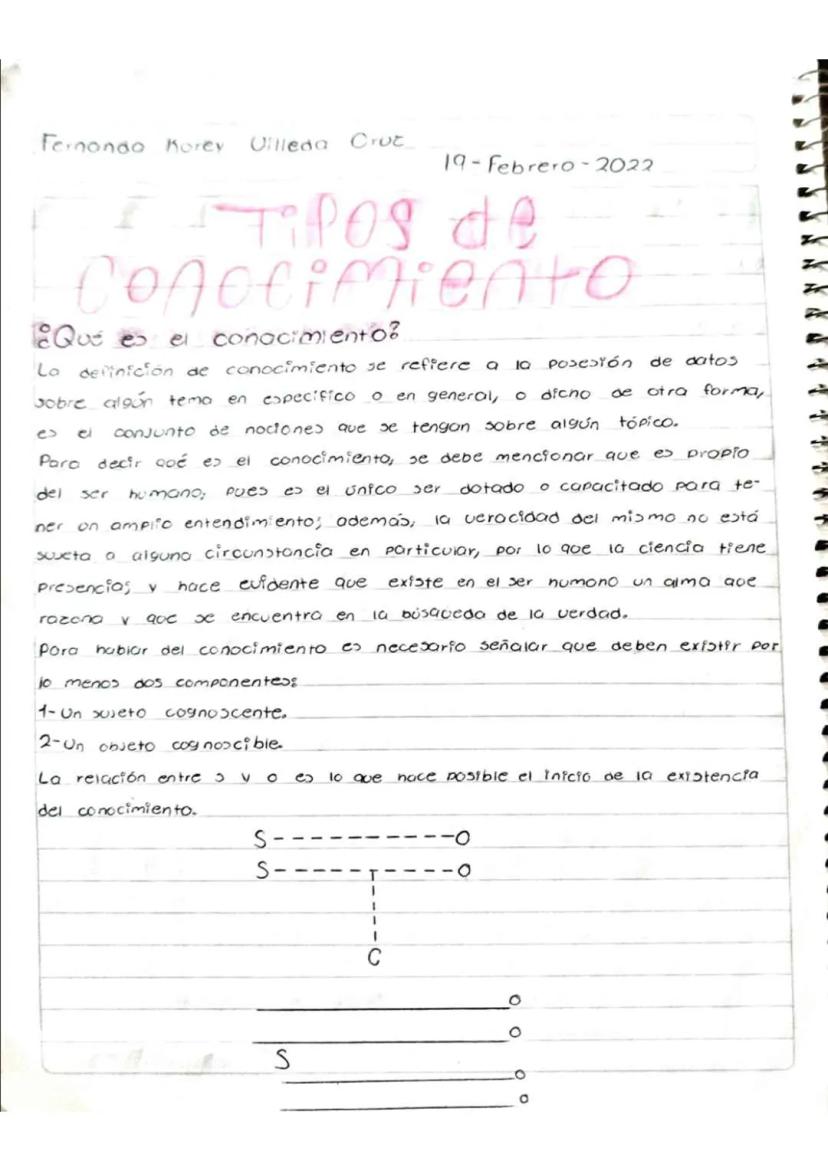 Fernando Korey Villeda Cruz
19-Febrero-2022
Tipos de
conocimiento
¿Qué es el conocimiento?
La definición de conocimiento se refiere a la posesión de datos
sobre algún tema en específico o en general, o dicho de otra forma,
es el conjunto de nociones que se tengan sobre algún tópico.
Para decir qué es el conocimiento, se debe mencionar que es propio
del ser humano, pues es el único ser dotado o capacitado para te-
ner un amplio entendimiento; además, la veracidad del mismo no está
sujeta a alguna circunstancia en particular, por lo que la ciencia tiene
presencia; y hace evidente que existe en el ser humano un alma que
razona y que se encuentra en la búsqueda de la verdad.
Para hablar del conocimiento es necesario señalar que deben existir por
lo menos dos componentes:
1-Un sujeto cognoscente.
2-Un objeto cognoscible.
La relación entre s y o es lo que hace posible el inicio de la existencia
del conocimiento.
S----------O
S----------O
C
O
O
S
O
O